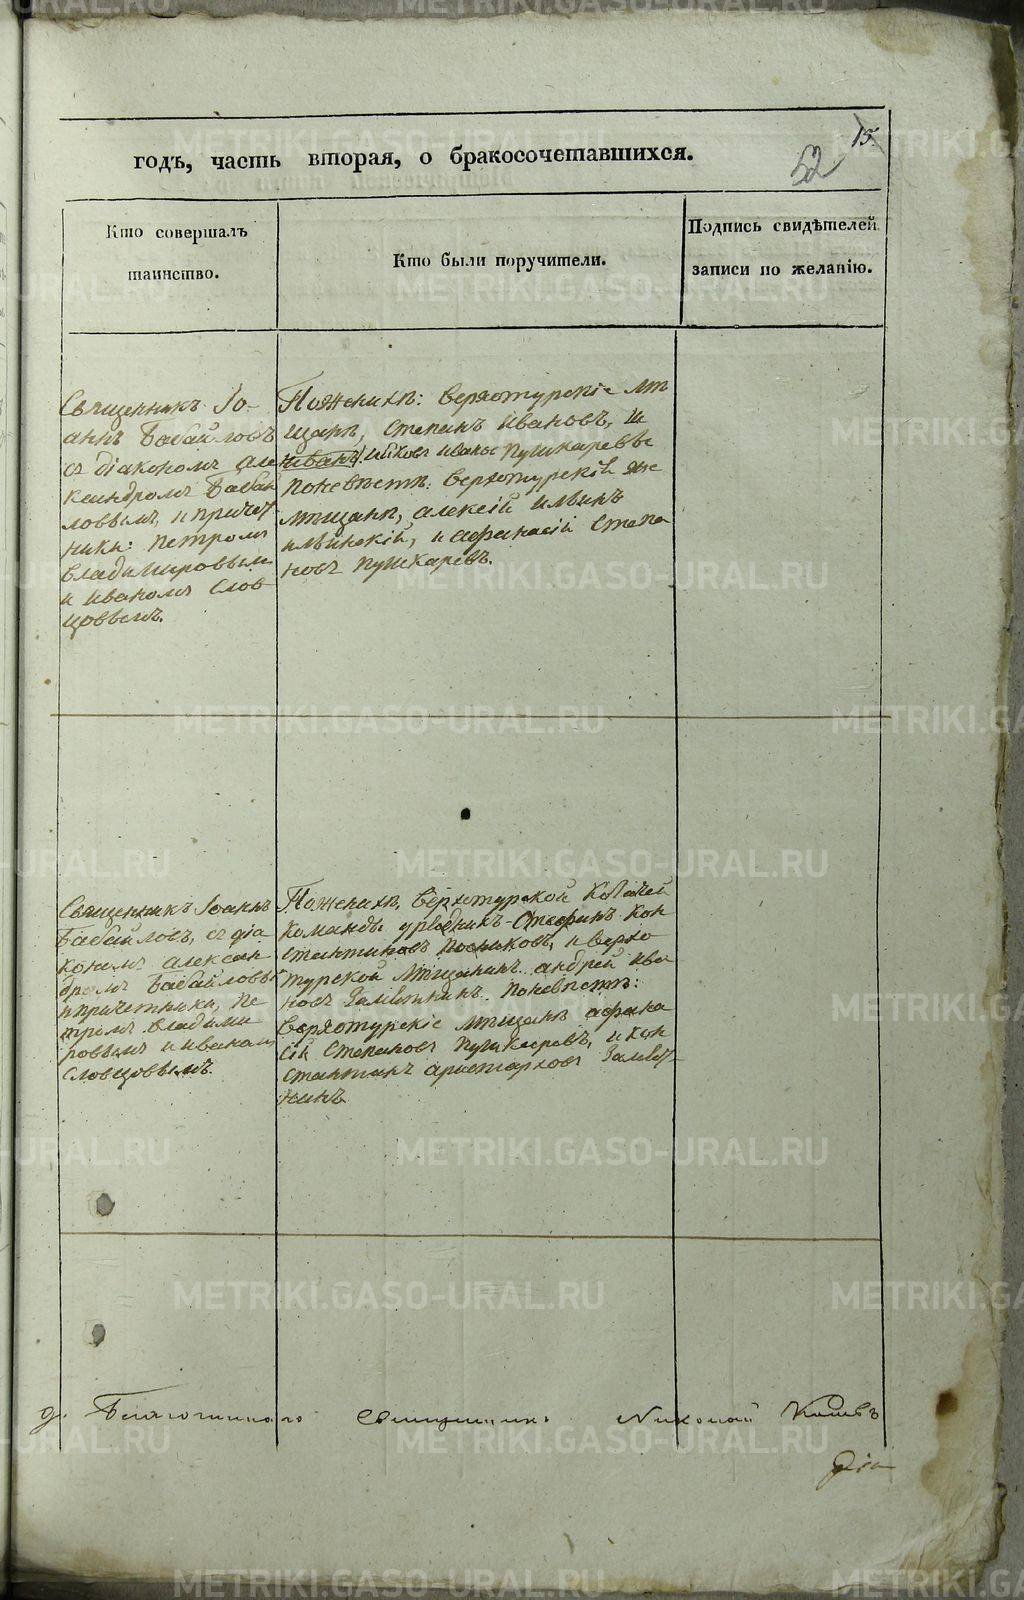 годъ, часть вторая, о бракосочетавшихся.
15
52
Кто совершалъ
таинство.
Кто были поручители.
Подпись свидѣтелей
записи по желанію.
Священникъ Іо-
аннъ Бабайловъ
съ діакономъ Але
ксандромъ Бабай
ловымъ, и причет
ники: Петромъ
Владимировымъ
и Иваномъ Слов
цовымъ.
Пожениxѣ: Верхотурскіе мѣ
щанѣ, Степанъ Ивановъ, и
Иванъ Пушкаревы
Поневѣстѣ: Верхотурскій же
мѣщанѣ, Алексій Ильинъ
Ильинскій, и Афанасій Степа
новъ Пушкаревъ.
Священникъ Іоаннъ
Бабайловъ, съ діа
кономъ Алексан
дромъ Бабайловы
и причетники, Пе
тромъ Владими
ровымъ и Иваномъ
Словцовымъ.
Пожениxѣ, Верхотурской Козачей
Команды урядникъ Стефанъ Кон
стантиновъ Посниковъ, и Верхо
турской мѣщанинъ Андрей Ива
новъ Поневѣстѣ:
Верхотурскіе мѣщанѣ Афана
сій Степановъ Пушкаревъ, и Кон
стантинъ Аристарховъ
нинъ
д. Благочиннаго Священникъ Николай
METRIKI.GASO-URAL.RU